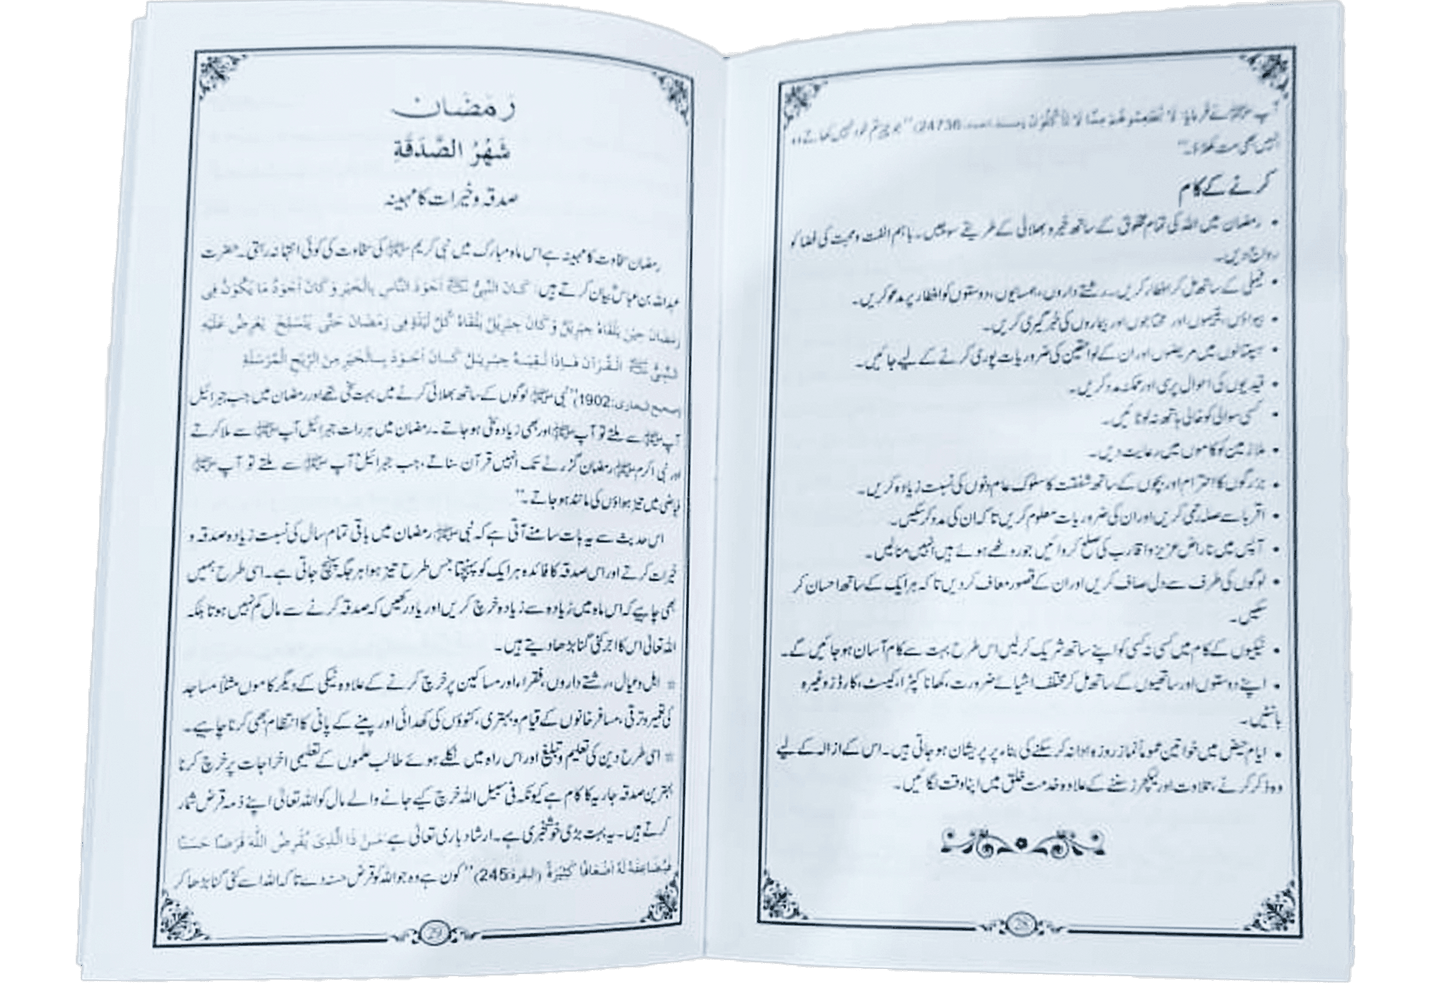 آپ ﷺ نے فرمایا: لَا تُطْعِمُوهُمْ مِمَّا لَا تَأْكُلُوْنَ (مسند احمد: 24736) ”جو چیز تم خود نہیں کھاتے وہ
انہیں بھی مت کھلاؤ۔“
کرنے کے کام
• رمضان میں اللہ کی تمام مخلوق کے ساتھ خیر و بھلائی کے طریقے سوچیں۔ باہم الفت و محبت کی فضا کو
رواج دیں۔
• فیملی کے ساتھ مل کر افطار کریں۔ رشتے داروں، ہمسائیوں، دوستوں کو افطار پر مدعو کریں۔
• بیواؤں، یتیموں اور محتاجوں اور بیماروں کی خبر گیری کریں۔
• ہسپتالوں میں مریضوں اور ان کے لواحقین کی ضروریات پوری کرنے کے لیے جائیں۔
• قیدیوں کی احوال پرسی اور ممکنہ مدد کریں۔
• کسی سوالی کو خالی ہاتھ نہ لوٹائیں۔
• ملازمین کو کاموں میں رعایت دیں۔
• بزرگوں کا احترام اور بچوں کے ساتھ شفقت کا سلوک عام دنوں کی نسبت زیادہ کریں۔
• اقربا سے صلہ رحمی کریں اور ان کی ضروریات معلوم کریں تاکہ ان کی مدد کر سکیں۔
• آپس میں ناراض عزیز و اقارب کی صلح کروائیں جو روٹھے ہوئے ہیں انہیں منا لیں۔
• لوگوں کی طرف سے دل صاف کریں اور ان کے قصور معاف کر دیں تاکہ ہر ایک کے ساتھ احسان کر
سکیں۔
• نیکیوں کے کام میں کسی نہ کسی کو اپنے ساتھ شریک کر لیں اس طرح بہت سے کام آسان ہو جائیں گے۔
• اپنے دوستوں اور ساتھیوں کے ساتھ مل کر مختلف اشیائے ضرورت، کھانا، کپڑا، کیسٹ، کارڈز وغیرہ
بانٹیں۔
• ایام حیض میں خواتین عموماً نماز روزہ ادا نہ کر سکنے کی بناء پر پریشان ہو جاتی ہیں۔ اس کے ازالہ کے لیے
وہ ذکر کرنے، تلاوت اور لیکچرز سننے کے علاوہ خدمت خلق میں اپنا وقت لگائیں۔
28
رَمَضَان
شَهْرُ الصَّدَقَةِ
صدقہ و خیرات کا مہینہ
رمضان سخاوت کا مہینہ ہے اس ماہ مبارک میں نبی کریم ﷺ کی سخاوت کی کوئی انتہا نہ رہتی۔ حضرت
عبداللہ بن عباسؓ بیان کرتے ہیں: كَانَ النَّبِيُّ ﷺ أَجْوَدَ النَّاسِ بِالْخَيْرِ وَكَانَ أَجْوَدُ مَا يَكُوْنُ فِي
رَمَضَانَ حِيْنَ يَلْقَاهُ جِبْرِيْلُ وَكَانَ جِبْرِيْلُ يَلْقَاهُ كُلَّ لَيْلَةٍ فِي رَمَضَانَ حَتّٰى يَنْسَلِخَ يَعْرِضُ عَلَيْهِ
النَّبِيُّ ﷺ الْقُرْآنَ فَإِذَا لَقِيَهُ جِبْرِيْلُ كَانَ أَجْوَدَ بِالْخَيْرِ مِنَ الرِّيْحِ الْمُرْسَلَةِ
(صحیح البخاری: 1902) ”نبی ﷺ لوگوں کے ساتھ بھلائی کرنے میں بہت سخی تھے اور رمضان میں جب جبرائیل
آپ ﷺ سے ملتے تو آپ ﷺ اور بھی زیادہ سخی ہو جاتے۔ رمضان میں ہر رات جبرائیل آپ ﷺ سے ملا کرتے
اور نبی اکرم ﷺ رمضان گزرنے تک انہیں قرآن سناتے، جب جبرائیلؑ آپ ﷺ سے ملتے تو آپ ﷺ
فیاضی میں تیز ہواؤں کی مانند ہو جاتے۔“
اس حدیث سے یہ بات سامنے آتی ہے کہ نبی ﷺ رمضان میں باقی تمام سال کی نسبت زیادہ صدقہ و
خیرات کرتے اور اس صدقہ کا فائدہ ہر ایک کو پہنچتا جس طرح تیز ہوا ہر جگہ پہنچ جاتی ہے۔ اسی طرح ہمیں
بھی چاہیے کہ اس ماہ میں زیادہ سے زیادہ خرچ کریں اور یاد رکھیں کہ صدقہ کرنے سے مال کم نہیں ہوتا بلکہ
اللہ تعالیٰ اس کا اجر کئی گنا بڑھا دیتے ہیں۔
☆ اہل و عیال، رشتے داروں، فقراء اور مساکین پر خرچ کرنے کے علاوہ نیکی کے دیگر کاموں مثلاً مساجد
کی تعمیر و ترقی، مسافر خانوں کے قیام و بہتری، کنوؤں کی کھدائی اور پینے کے پانی کا انتظام بھی کرنا چاہیے۔
☆ اسی طرح دین کی تعلیم و تبلیغ اور اس راہ میں نکلے ہوئے طالب علموں کے تعلیمی اخراجات پر خرچ کرنا
بہترین صدقہ جاریہ کا کام ہے کیونکہ فی سبیل اللہ خرچ کیے جانے والے مال کو اللہ تعالیٰ اپنے ذمہ قرض شمار
کرتے ہیں۔ یہ بہت بڑی خوشخبری ہے۔ ارشاد باری تعالیٰ ہے مَنْ ذَا الَّذِىْ يُقْرِضُ اللّٰهَ قَرْضًا حَسَنًا
فَيُضَاعِفَهُ لَهٗ اَضْعَافًا كَثِيْرَةً (البقرة: 245) ”کون ہے وہ جو اللہ کو قرض حسنہ دے تاکہ اللہ اسے کئی گنا بڑھا کر
29